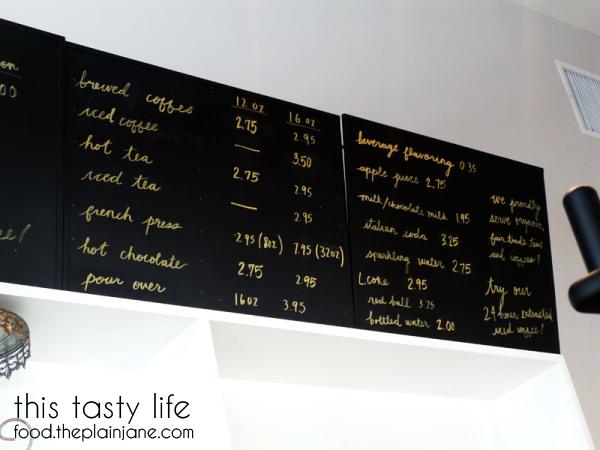 on
00
!
12 oz 16 oz
brewed coffee 2.75 2.95
iced coffee — 3.50
hot tea 2.75 2.95
iced tea — 2.95
french press 2.95 (8oz) 7.95 (32oz)
hot chocolate 2.75 2.95
pour over 16oz 3.95
beverage flavoring 0.35
apple juice 2.75
milk/chocolate milk 1.95
italian soda 3.25
sparkling water 2.75
coke 2.95
red bull 3.75
bottled water 2.00
we proudly
serve organic,
fair trade teas
and coffees!
try our
24 hour extracted
iced coffee!
this tasty life
food.theplainjane.com